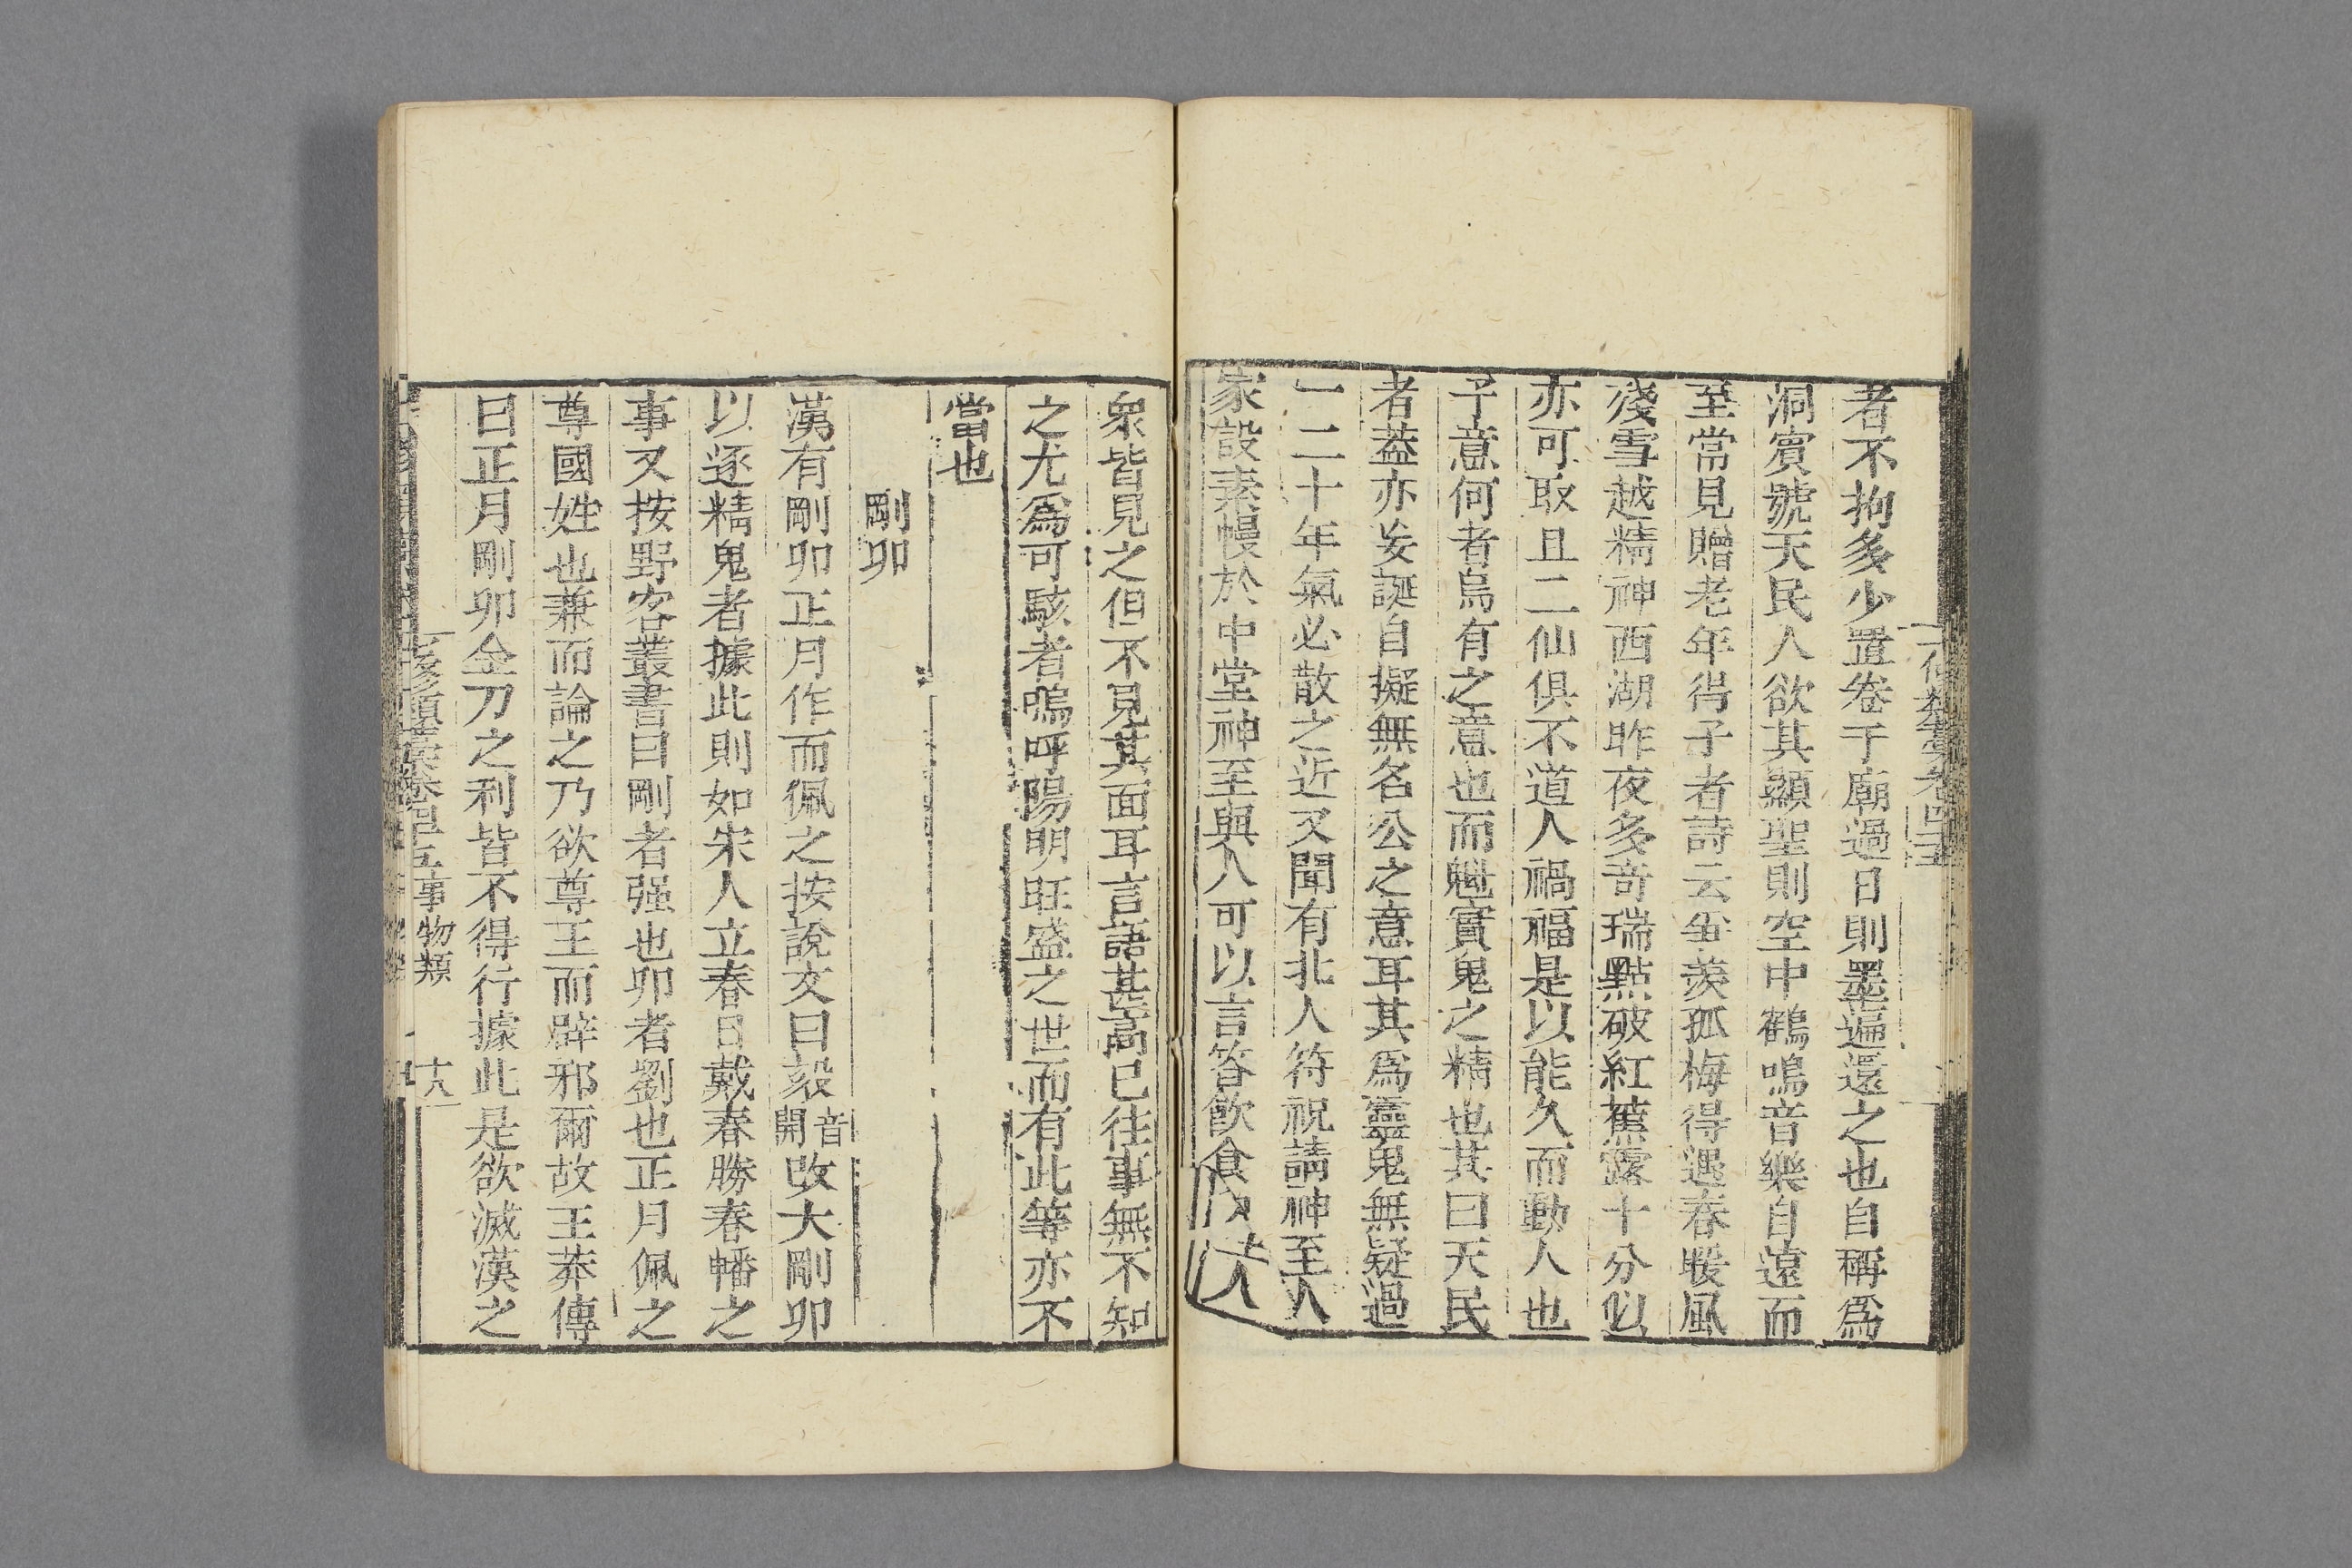 者不拘多少置卷于廟過日則墨遍還之也自稱爲
洞賓號天民人欲其顯聖則空中鶴鳴音樂自遠而
至常見贈老年得子者詩云每羨孤梅得遇春暖風
殘雪越精神西湖昨夜多奇瑞點破紅蕉露十分似
亦可取且二仙俱不道人禍福是以能久而動人也
予意何者烏有之意也而魈實鬼之精也其曰天民
者葢亦妄誕自擬無名公之意耳其爲靈鬼無疑過
一二十年氣必散之近又聞有北人符祝請神至人
家設素幔於中堂神至與人可以言答飲食
衆皆見之但不見其面耳言語甚高已往事無不知
之尤爲可駭者嗚呼陽明旺盛之世而有此等亦不
當也
剛卯
漢有剛卯正月作而佩之按說文曰㱾音開改大剛卯
以逐精鬼者據此則如宋人立春日戴春勝春幡之
事又按野客叢書曰剛者强也卯者劉也正月佩之
尊國姓也兼而論之乃欲尊王而辟邪爾故王莽傳
曰正月剛卯金刀之利皆不得行據此是欲滅漢之
七修類藁卷四十五事物類 十八